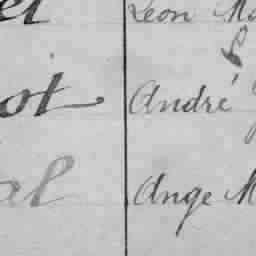 Léon
ot André
al Ange M